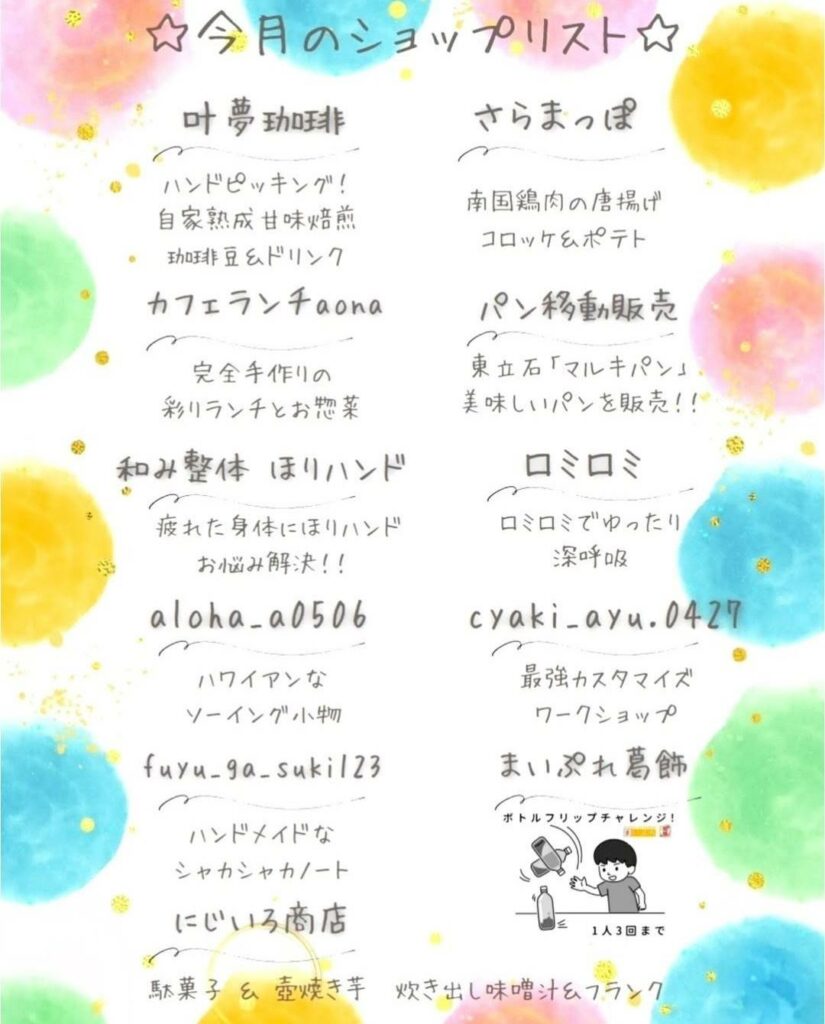 ☆今月のショップリスト☆
叶夢珈琲
ハンドピッキング！
自家熟成甘味焙煎
珈琲豆&ドリンク
さらまっぽ
南国鶏肉の唐揚げ
コロッケ&ポテト
カフェランチaona
完全手作りの
彩りランチとお惣菜
パン移動販売
東立石「マルキパン」
美味しいパンを販売！！
和み整体 ほりハンド
疲れた身体にほりハンド
お悩み解決！！
ロミロミ
ロミロミでゆったり
深呼吸
aloha_a0506
ハワイアンな
ソーイング小物
cyaki_ayu.0427
最強カスタマイズ
ワークショップ
fuyu_ga_suki123
ハンドメイドな
シャカシャカノート
まいぷれ葛飾
ボトルフリップチャレンジ！
1人3回まで
にじいろ商店
駄菓子 & 壺焼き芋 炊き出し味噌汁&フランク